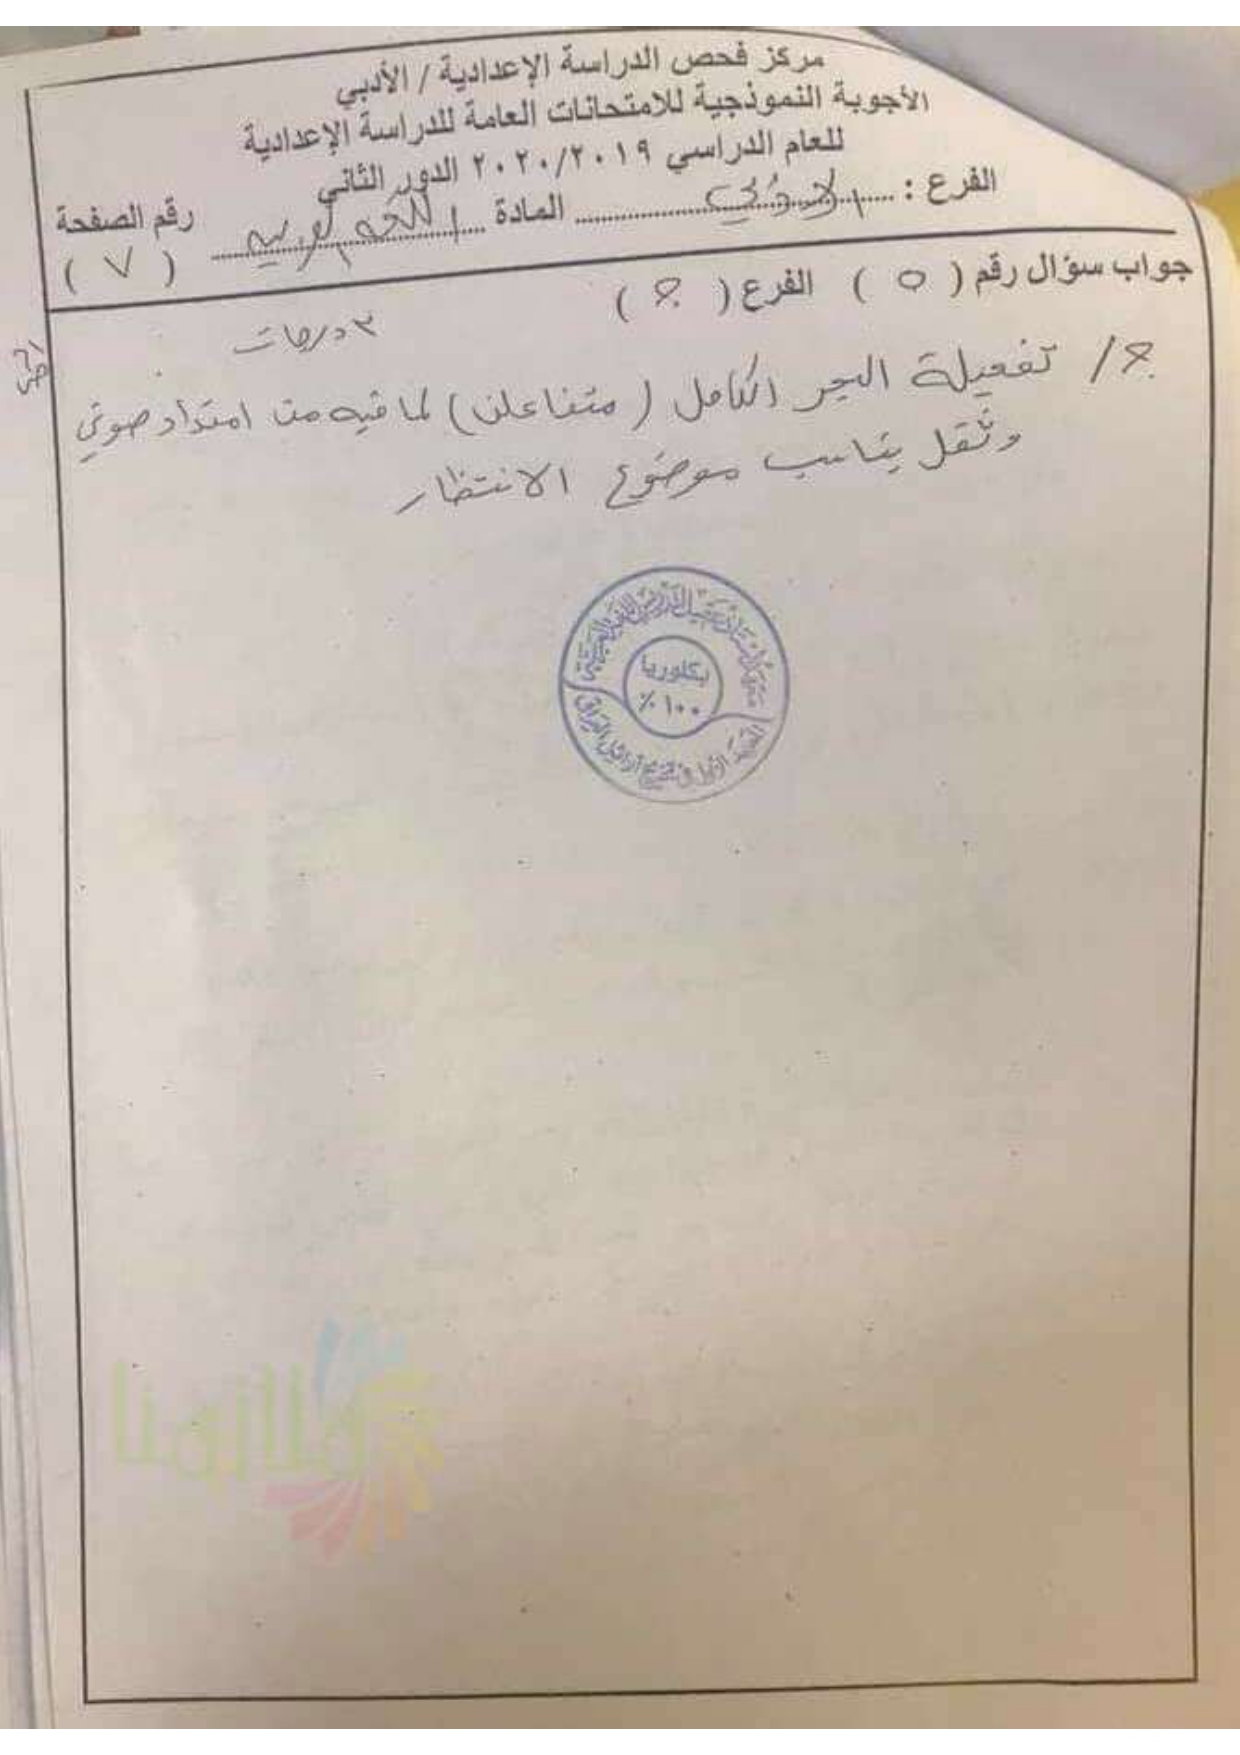 مركز فحص الدراسة الإعدادية / الأدبي
الأجوبة النموذجية للامتحانات العامة للدراسة الإعدادية
للعام الدراسي ٢٠٢٠/٢٠١٩ الدور الثاني
الفرع : الادبي المادة اللغة العربية رقم الصفحة
( ٧ )
جواب سؤال رقم ( ٥ ) الفرع ( ج )
٣ درجات
ج / تفعيلة البحر الكامل ( متفاعلن ) لما فيه من امتداد صوتي
وثقل يناسب موضوع الانتظار
بكلوريا
١٠٠ ٪
ملازمنا